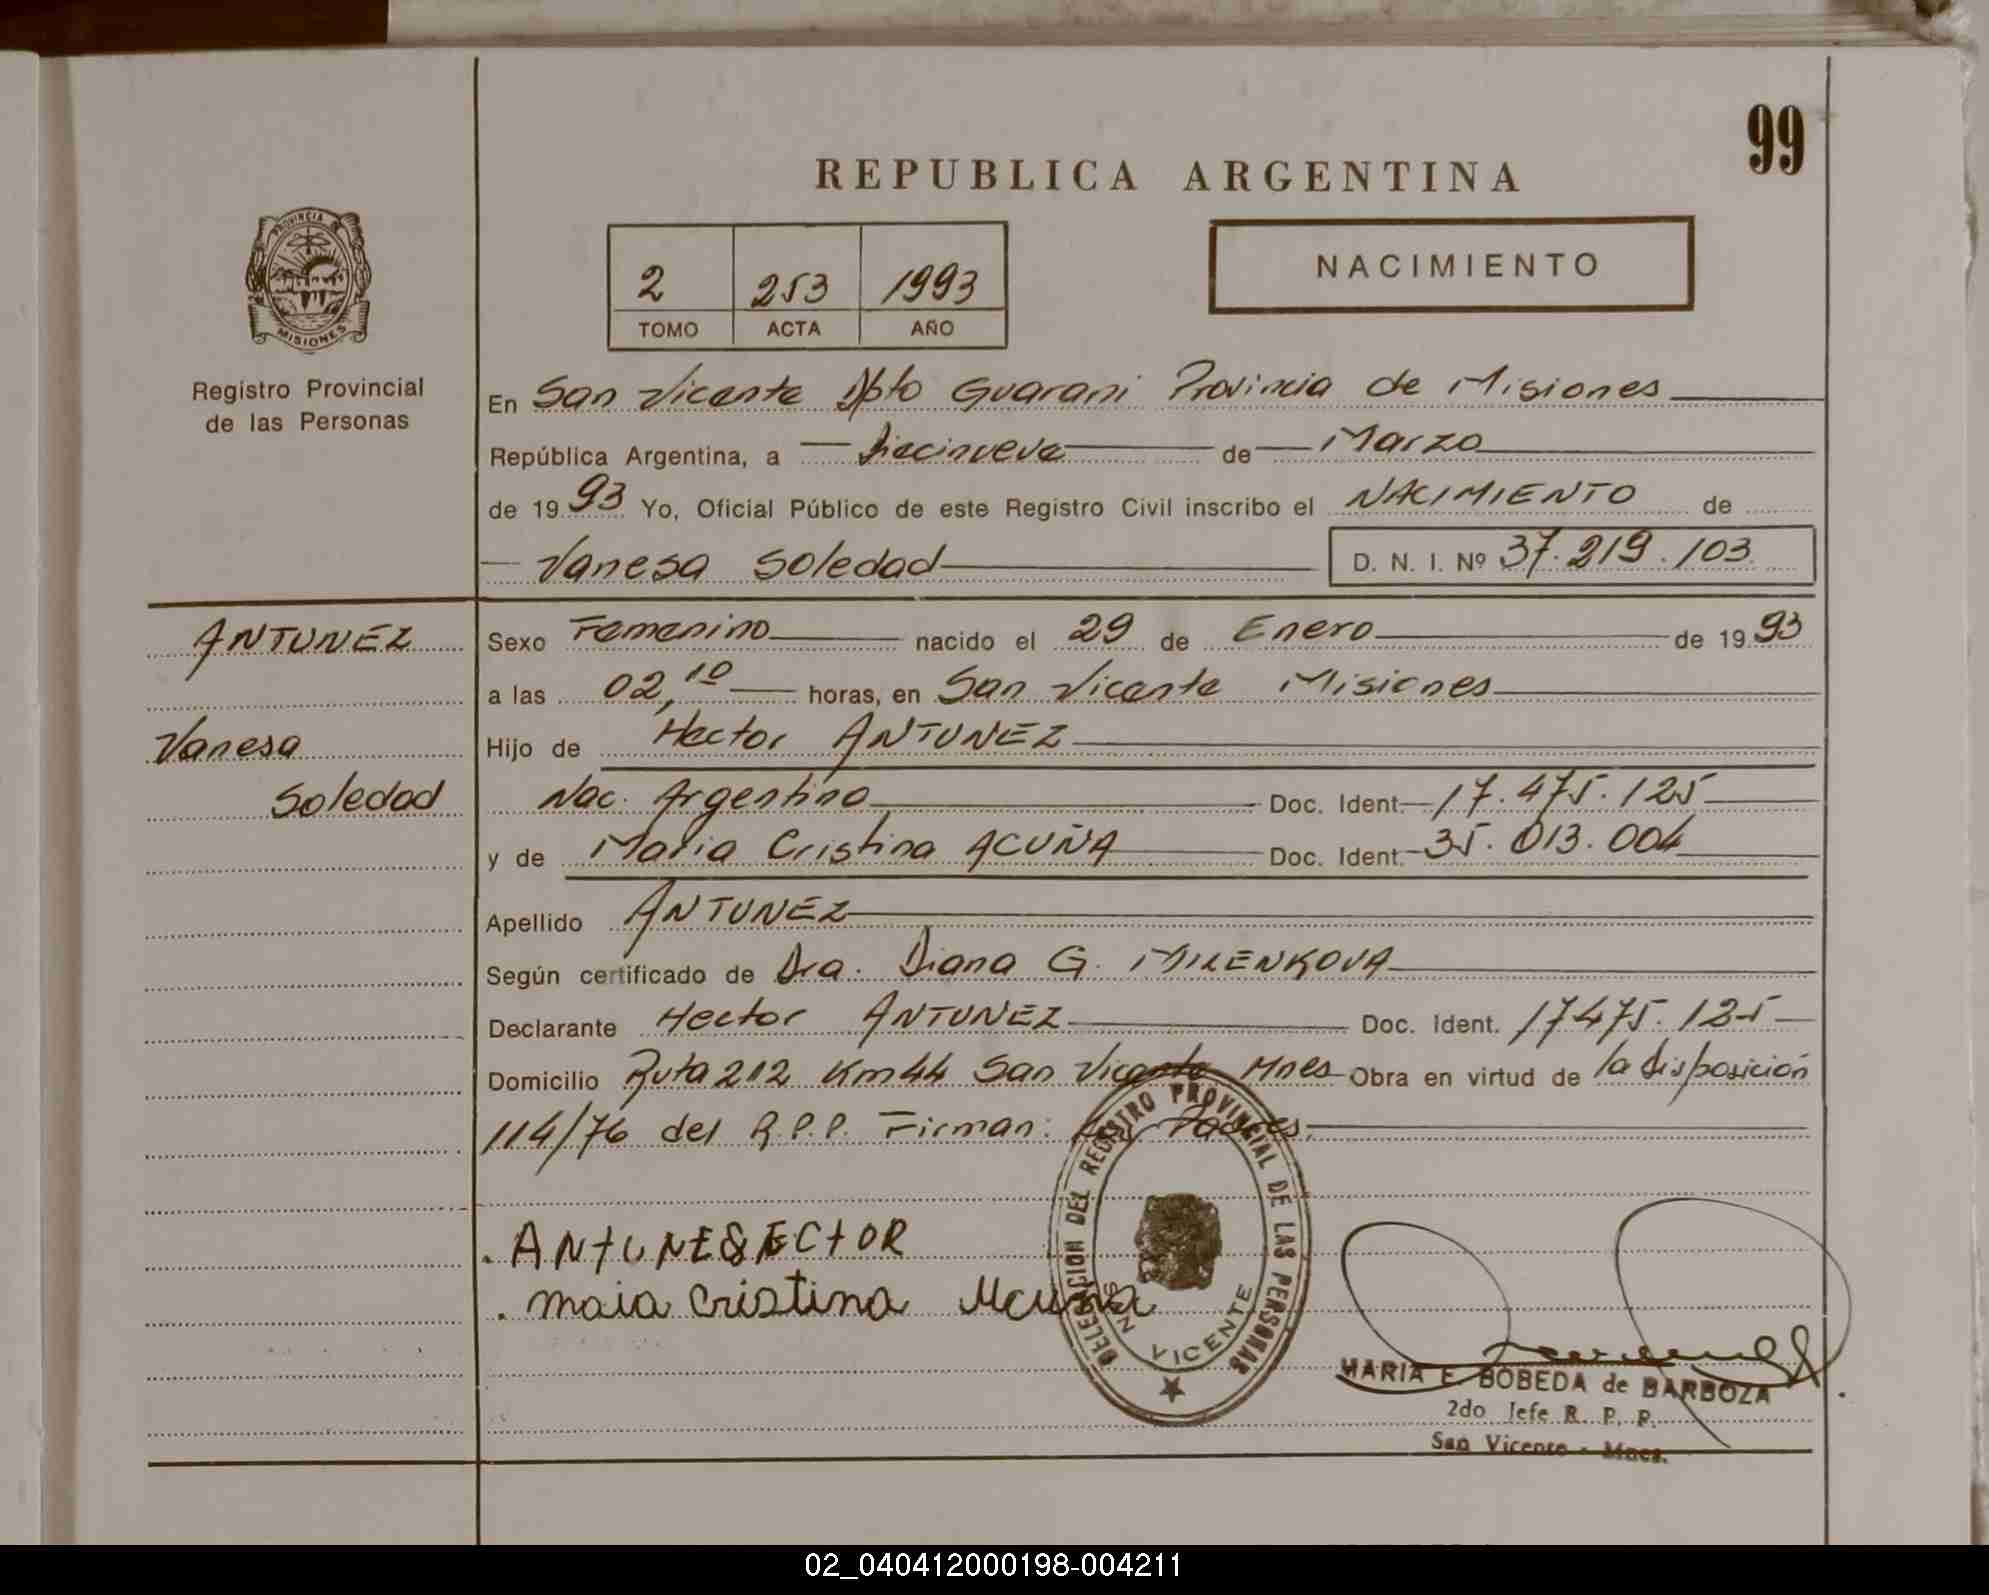 99
REPUBLICA ARGENTINA
PROVINCIA
MISIONES
Registro Provincial
de las Personas
2 253 1993
TOMO ACTA AÑO
NACIMIENTO
En San Vicente Dpto Guarani Provincia de Misiones
República Argentina, a Diecinueve de Marzo
de 1993 Yo, Oficial Público de este Registro Civil inscribo el NACIMIENTO de
Vanesa Soledad D. N. I. Nº 37.219.103
ANTUNEZ
Vanesa
Soledad
Sexo Femenino nacido el 29 de Enero de 1993
a las 02,10 horas, en San Vicente Misiones
Hijo de Hector ANTUNEZ
Nac. Argentino Doc. Ident. 17.475.125
y de Maria Cristina ACUÑA Doc. Ident. 35.013.004
Apellido ANTUNEZ
Según certificado de Dra. Diana G. MILENKOVA
Declarante Hector ANTUNEZ Doc. Ident. 17475.125
Domicilio Ruta 212 Km 44 San Vicente Mnes Obra en virtud de la disposición
114/76 del R.P.P. Firman: Padres.
maia cristina Acuna
DELEGACION DEL REGISTRO PROVINCIAL DE LAS PERSONAS
SAN VICENTE
MARIA E. BOBEDA de BARBOZA
2do Jefe R. P. P.
San Vicente - Mnes.
02_040412000198-004211